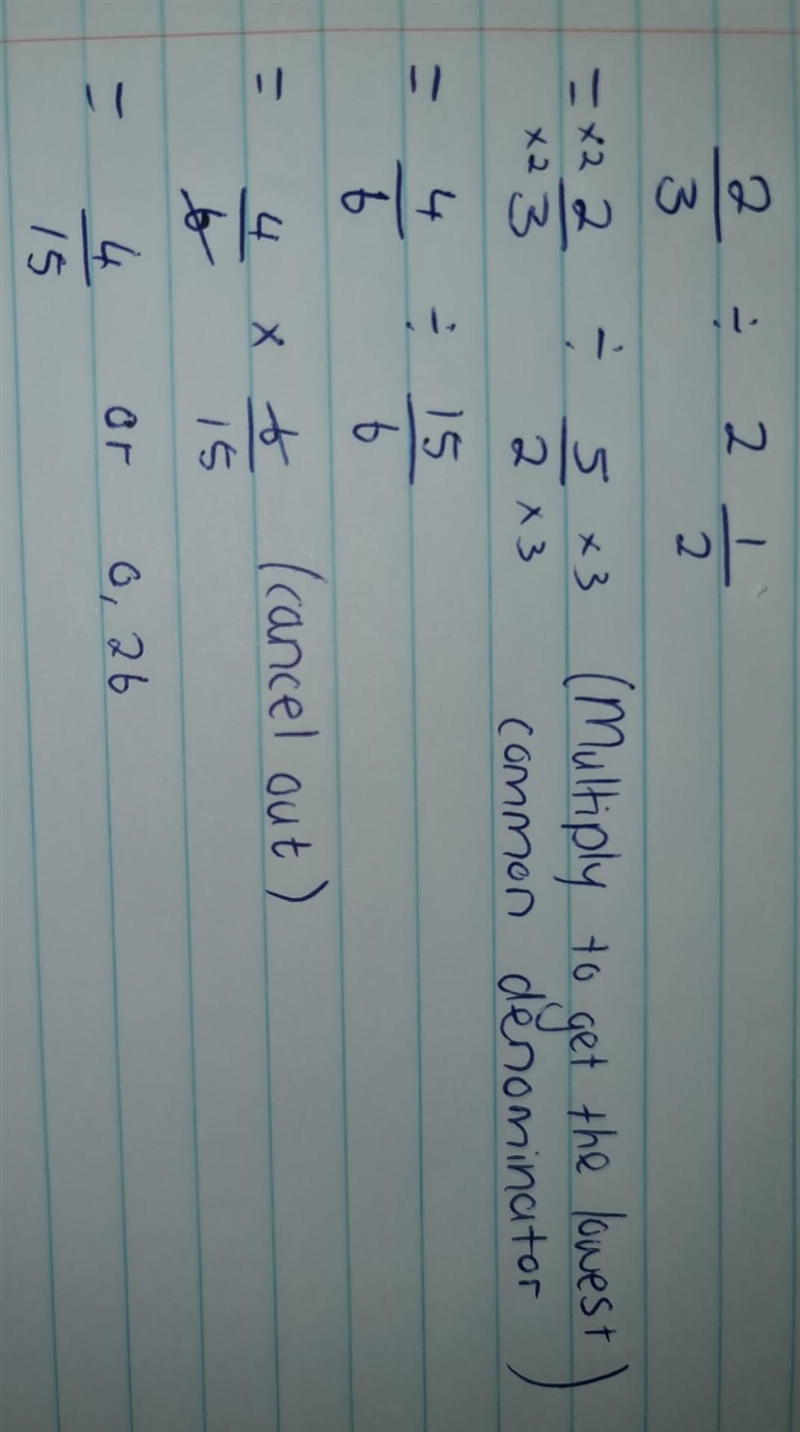 2/3 ÷ 2 1/2
= ×2 2/3 ×2 ÷ 5/2 ×3 ×3 (Multiply to get the lowest
common denominator)
= 4/6 ÷ 15/6
= 4/6 × 6/15 (cancel out)
= 4/15 or 0,26